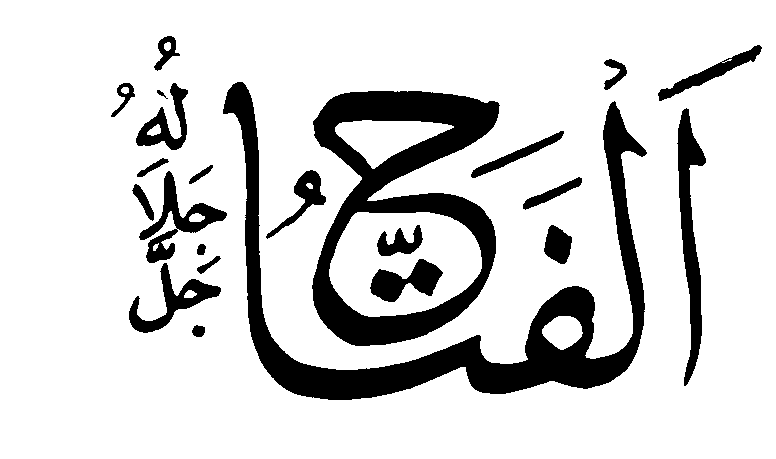 اَلْفَتَّاحُ
جَلَّ جَلَالُهُ